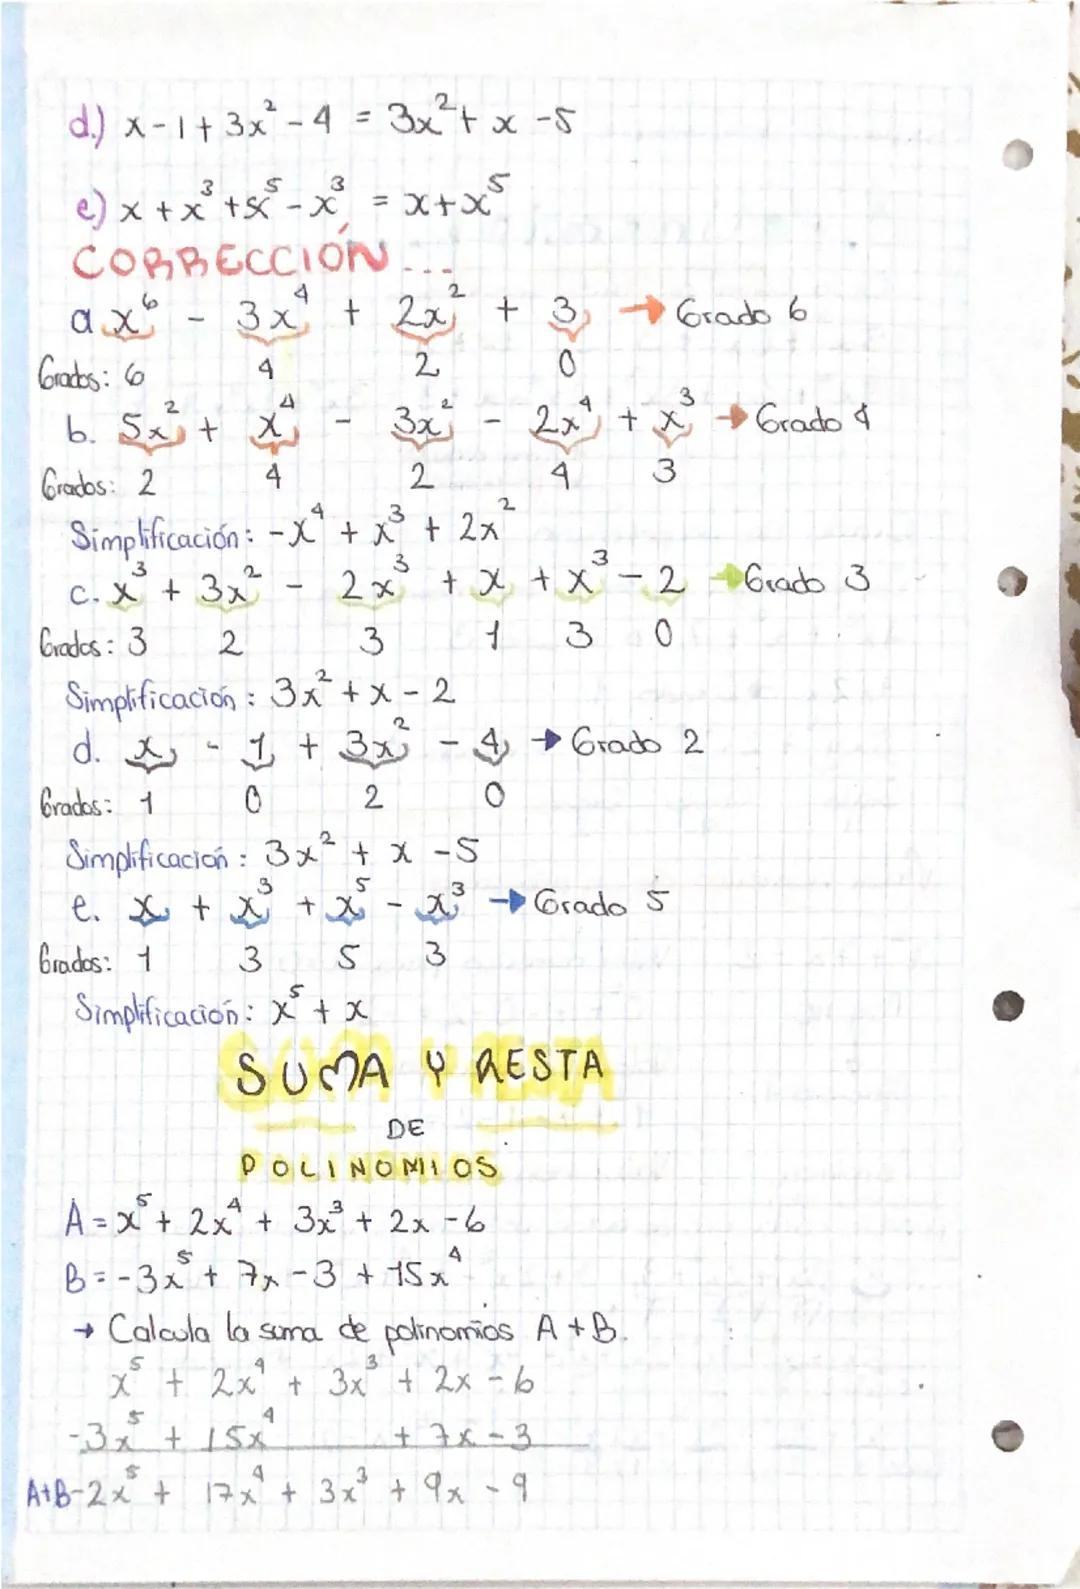 d.) x-1+3x² - 4 = 3x²+ x -5
e) x + x³ +x⁵ - x³ = x+x⁵
CORRECCIÓN ...
a x⁶ - 3x⁴ + 2x² + 3 → Grado 6
Grados: 6 4 2 0
b. 5x² + x⁴ - 3x² - 2x⁴ + x³ → Grado 4
Grados: 2 4 2 4 3
Simplificación: -x⁴ + x³ + 2x²
c. x³ + 3x² - 2x³ + x + x³ - 2 → Grado 3
Grados: 3 2 3 1 3 0
Simplificación: 3x² + x - 2
d. x - 1 + 3x² - 4 → Grado 2
Grados: 1 0 2 0
Simplificación: 3x² + x -5
e. x + x³ + x⁵ - x³ → Grado 5
Grados: 1 3 5 3
Simplificación: x⁵ + x
SUMA Y RESTA
DE
POLINOMIOS
A = x⁵ + 2x⁴ + 3x³ + 2x -6
B = -3x⁵ + 7x - 3 + 15x⁴
→ Calcula la suma de polinomios A + B.
x⁵ + 2x⁴ + 3x³ + 2x - 6
-3x⁵ + 15x⁴ + 7x - 3
A+B -2x⁵ + 17x⁴ + 3x³ + 9x - 9